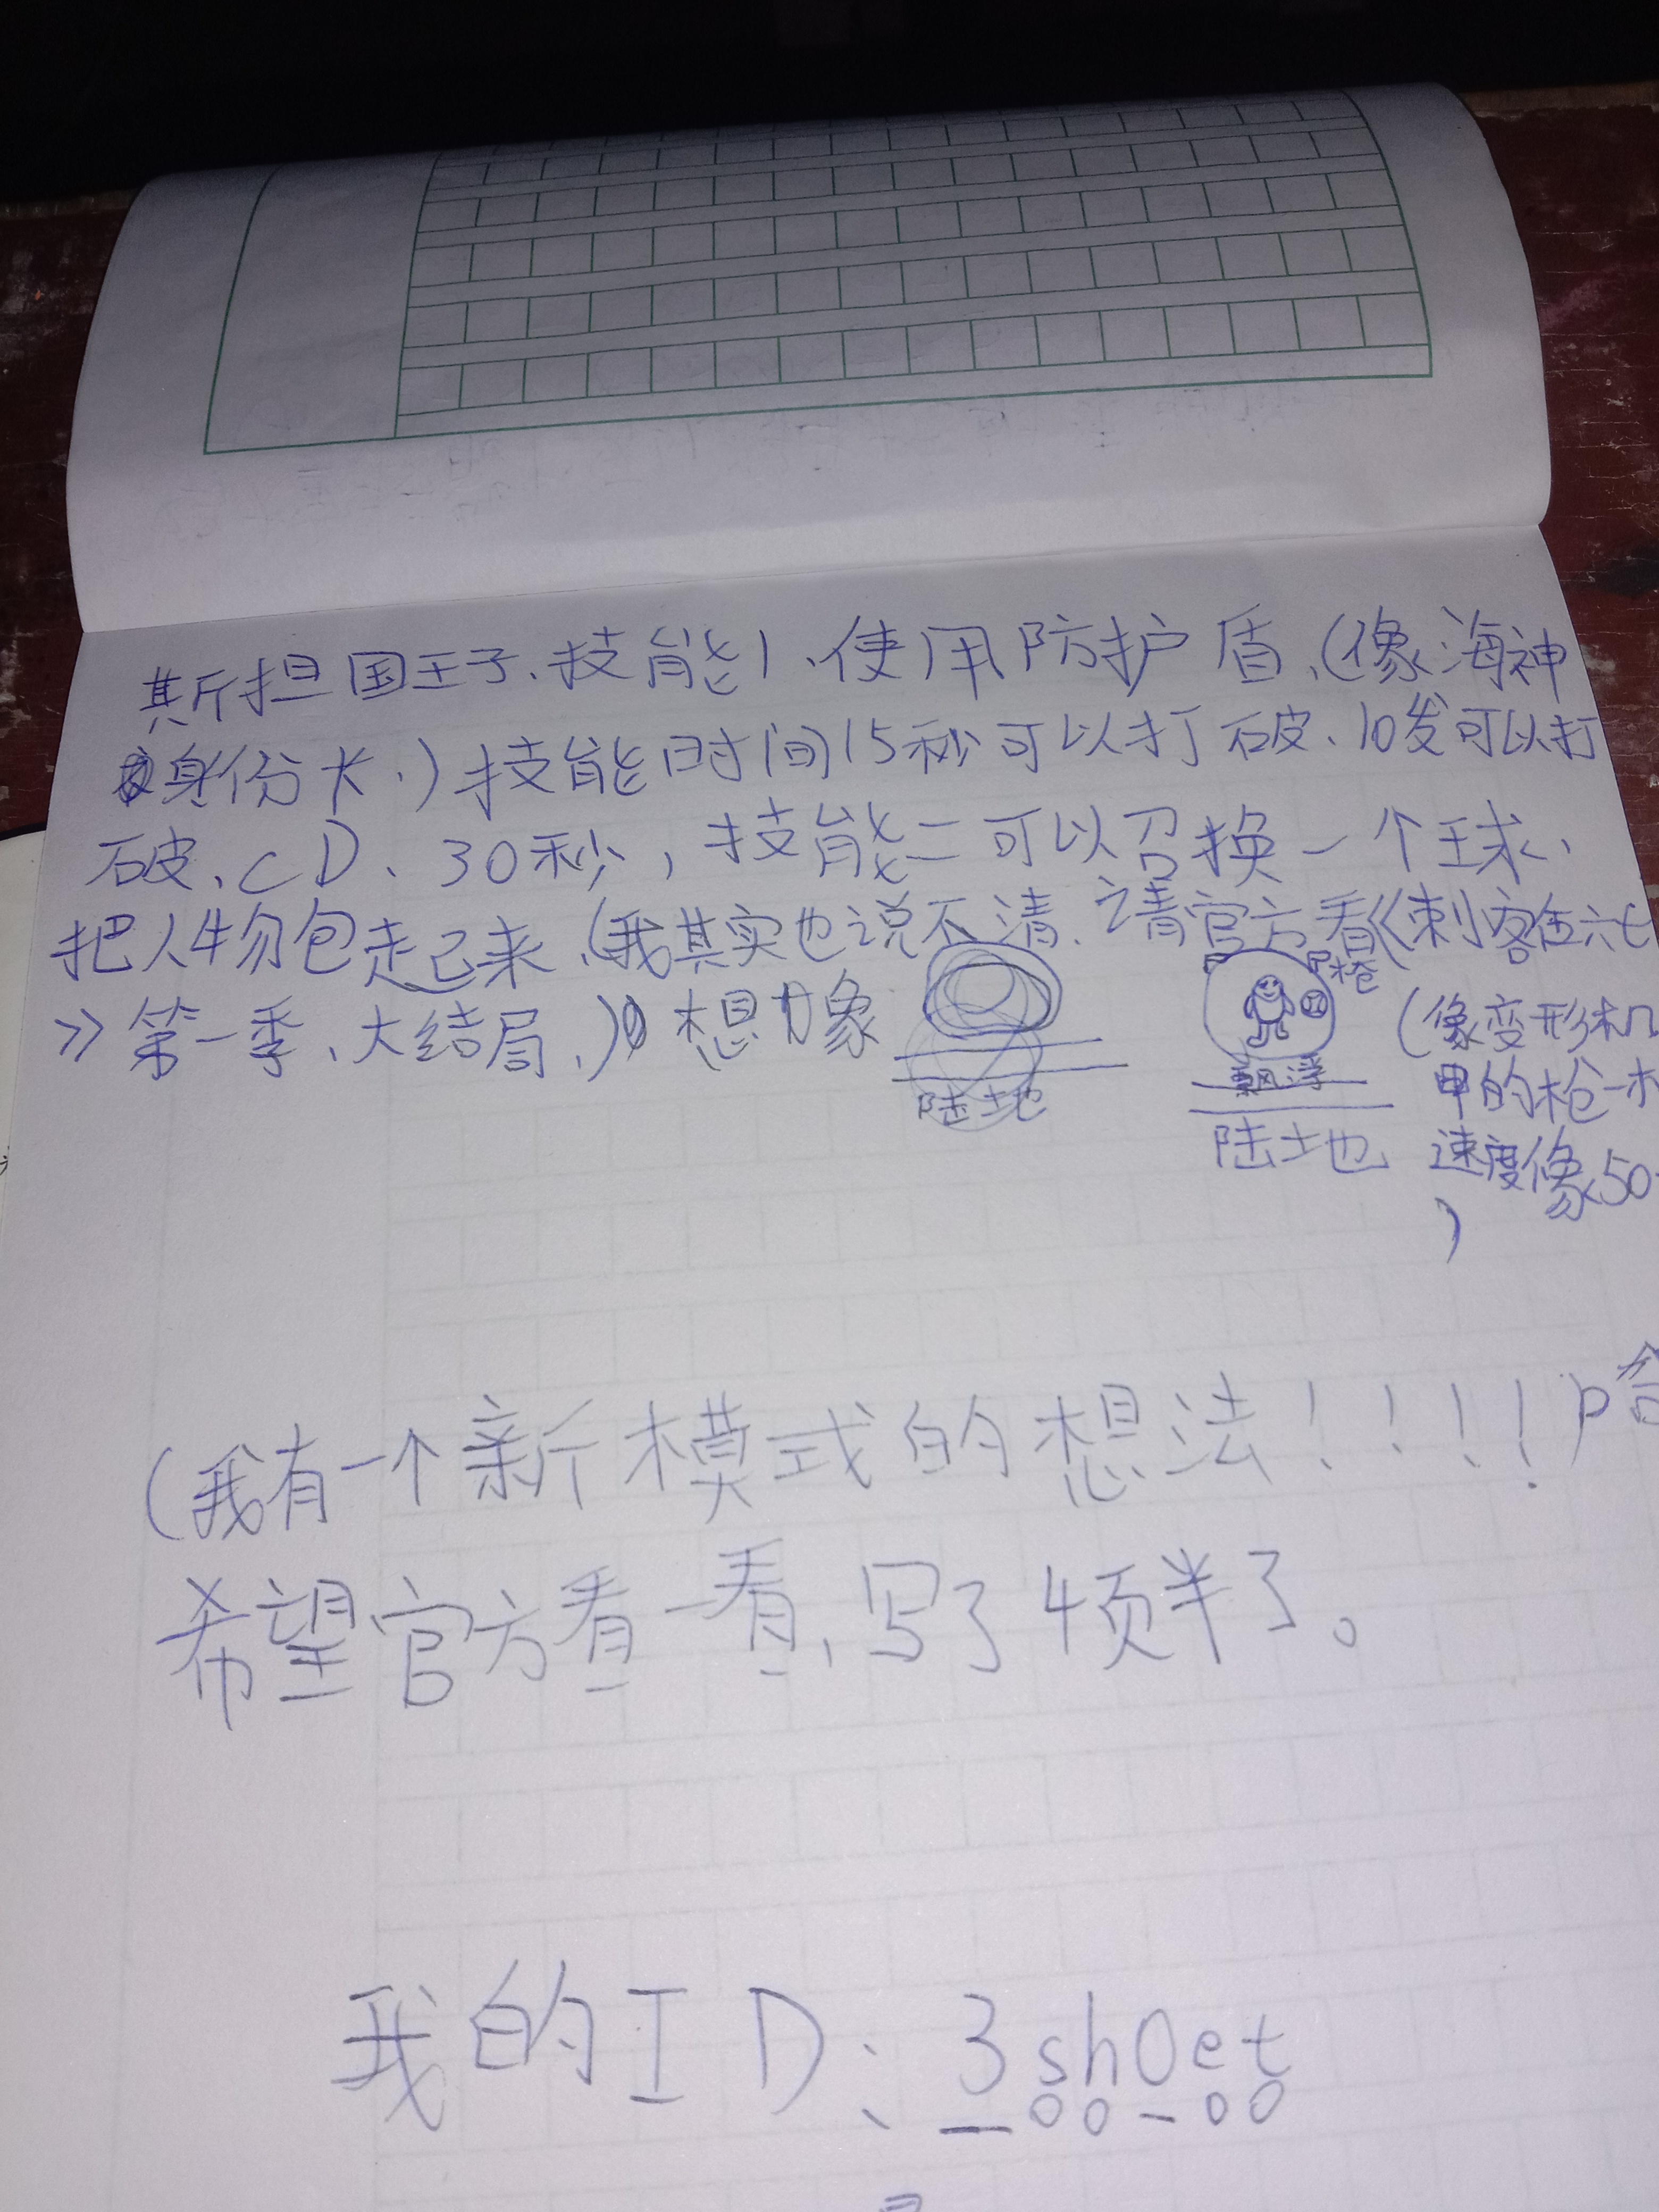 斯担国王子、技能1、使用防护盾、(像海神
身份卡、)技能时间15秒可以打破、10发可以打
破、CD、30秒，技能二可以召换一个球、
把人物包起来、(我其实也说不清、请官方看《刺客伍六七
》第一季、大结局、)想力象
枪
飘浮
陆地
陆地
(像变形机
甲的枪一
速度像50
)
(我有一个新模式的想法！！！！)哈
希望官方看一看、写了4页半了。
我的ID: 3sh0et